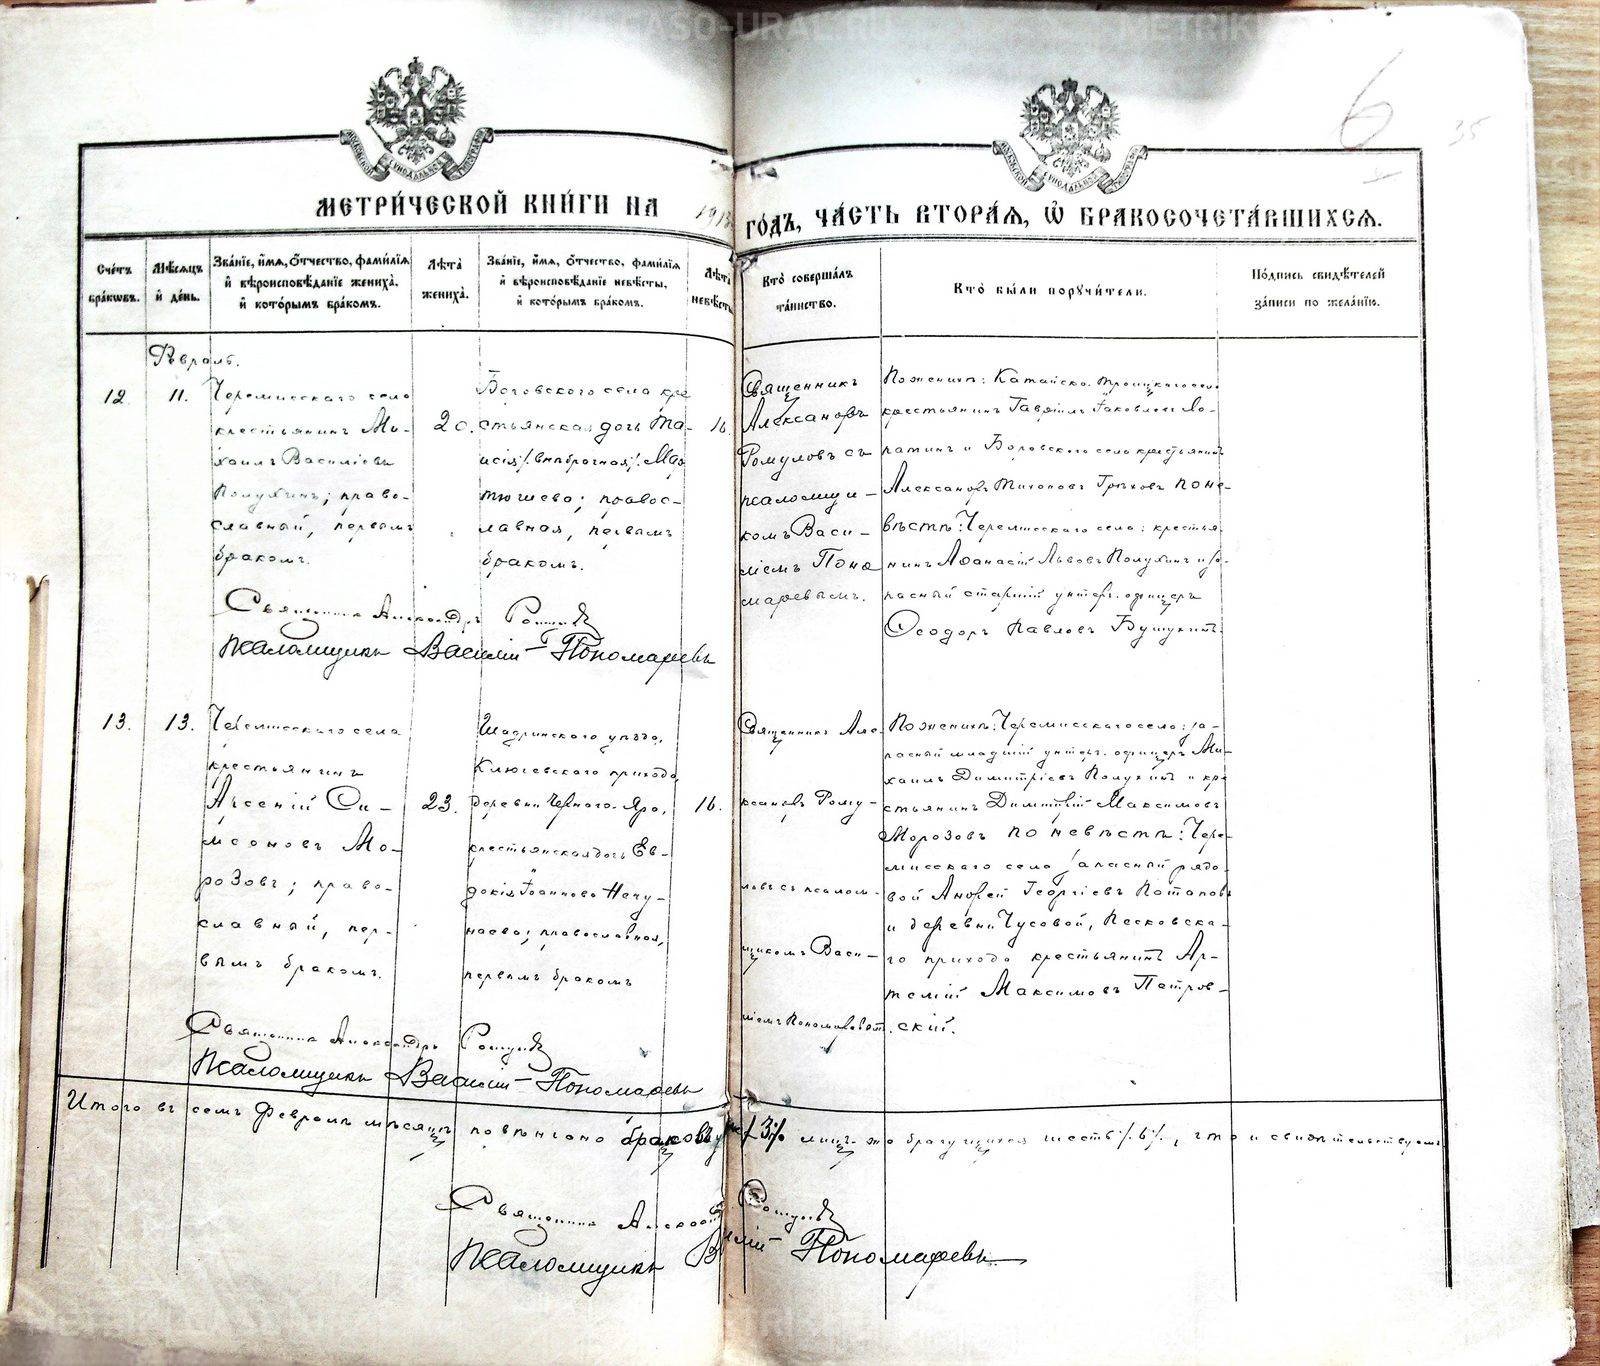 METRIKI.GASO-URAL.RU
6
35
МЕТРИ́ЧЕСКОЙ КНИ́ГИ НА
ГО́ДЪ, ЧА́СТЬ ВТОРА́Я, Ѿ БРАКОСОЧЕТА́ВШИХСЯ.
Сче́тъ бра́кѡвъ.
Мѣ́сяцъ и҆ де́нь.
Зва́нїе, и҆́мя, ѻ҆́тчество, фами́лїя и҆ вѣроисповѣ́данїе жениха̀, и҆ кото́рымъ бра́комъ.
Лѣ́та жениха̀.
Зва́нїе, и҆́мя, ѻ҆́тчество, фами́лїя и҆ вѣроисповѣ́данїе невѣ́сты, и҆ кото́рымъ бра́комъ.
Лѣ́та невѣ́сты
Кто̀ соверша́лъ та́инство.
Кто̀ бы́ли порꙋчи́тели.
По́дпись свидѣ́телей за́писи по жела́нїю.
Февраль.
12.
11.
Черемисскаго села
крестьянинъ Ми-
хаилъ Василіевъ
Полухинъ; право-
славный, первымъ
бракомъ.
20.
села кре
стьянская дочь Та-
исія /. внѣбрачная /.
; правос-
лавная, первымъ
бракомъ.
16.
Священникъ
Александръ
Ромуловъ съ
псаломщи-
комъ Васи-
ліемъ Поно
маревымъ.
По женихѣ: Катайско-Троицкаго села
крестьянинъ Гавріилъ Іаковлевъ Ло-
патинъ и Боровского села крестьянинъ
Александръ Тихоновъ Грѣховъ по не-
вѣстѣ: Черемисскаго села: крестья-
нинъ Аѳанасій Львовъ Полухинъ и за-
пасный старшій унтеръ-офицеръ
Ѳеодоръ Павловъ
Священникъ Александръ Ромуловъ
Псаломщикъ Василій Пономаревъ
13.
13.
Черемисскаго села
крестьянинъ
Арсеній Си-
мсоновъ Мо-
розовъ; право-
славный, пер-
вымъ бракомъ.
23.
Шадринского уѣзда,
Ключевского прихода,
деревни Черного-Яра,
крестьянская дочь Ев-
докія Іоаннова Нечу-
наева; православная,
первымъ бракомъ
16.
Священникъ Але
ксандръ Рому-
ловъ съ псалом-
щикомъ Васи-
ліемъ Пономаревымъ.
По женихѣ: Черемисскаго села: за-
пасный младшій унтеръ-офицеръ Ми-
хаилъ Димитріевъ Полухинъ и кре
стьянинъ Димитрій Максимовъ
Морозовъ по невѣстѣ: Чере-
мисскаго села запасный рядо-
вой Андрей Георгіевъ Потаповъ
и деревни Чусовой, Песковска-
го прихода крестьянинъ Ар-
темій Максимовъ Петров-
скій.
Священникъ Александръ Ромуловъ
Псаломщикъ Василій Пономаревъ
Итого въ семъ Февралѣ мѣсяцѣ повѣнчано браковъ 13 /. лицъ
Священникъ Александръ Ромуловъ
Псаломщикъ Василій Пономаревъ